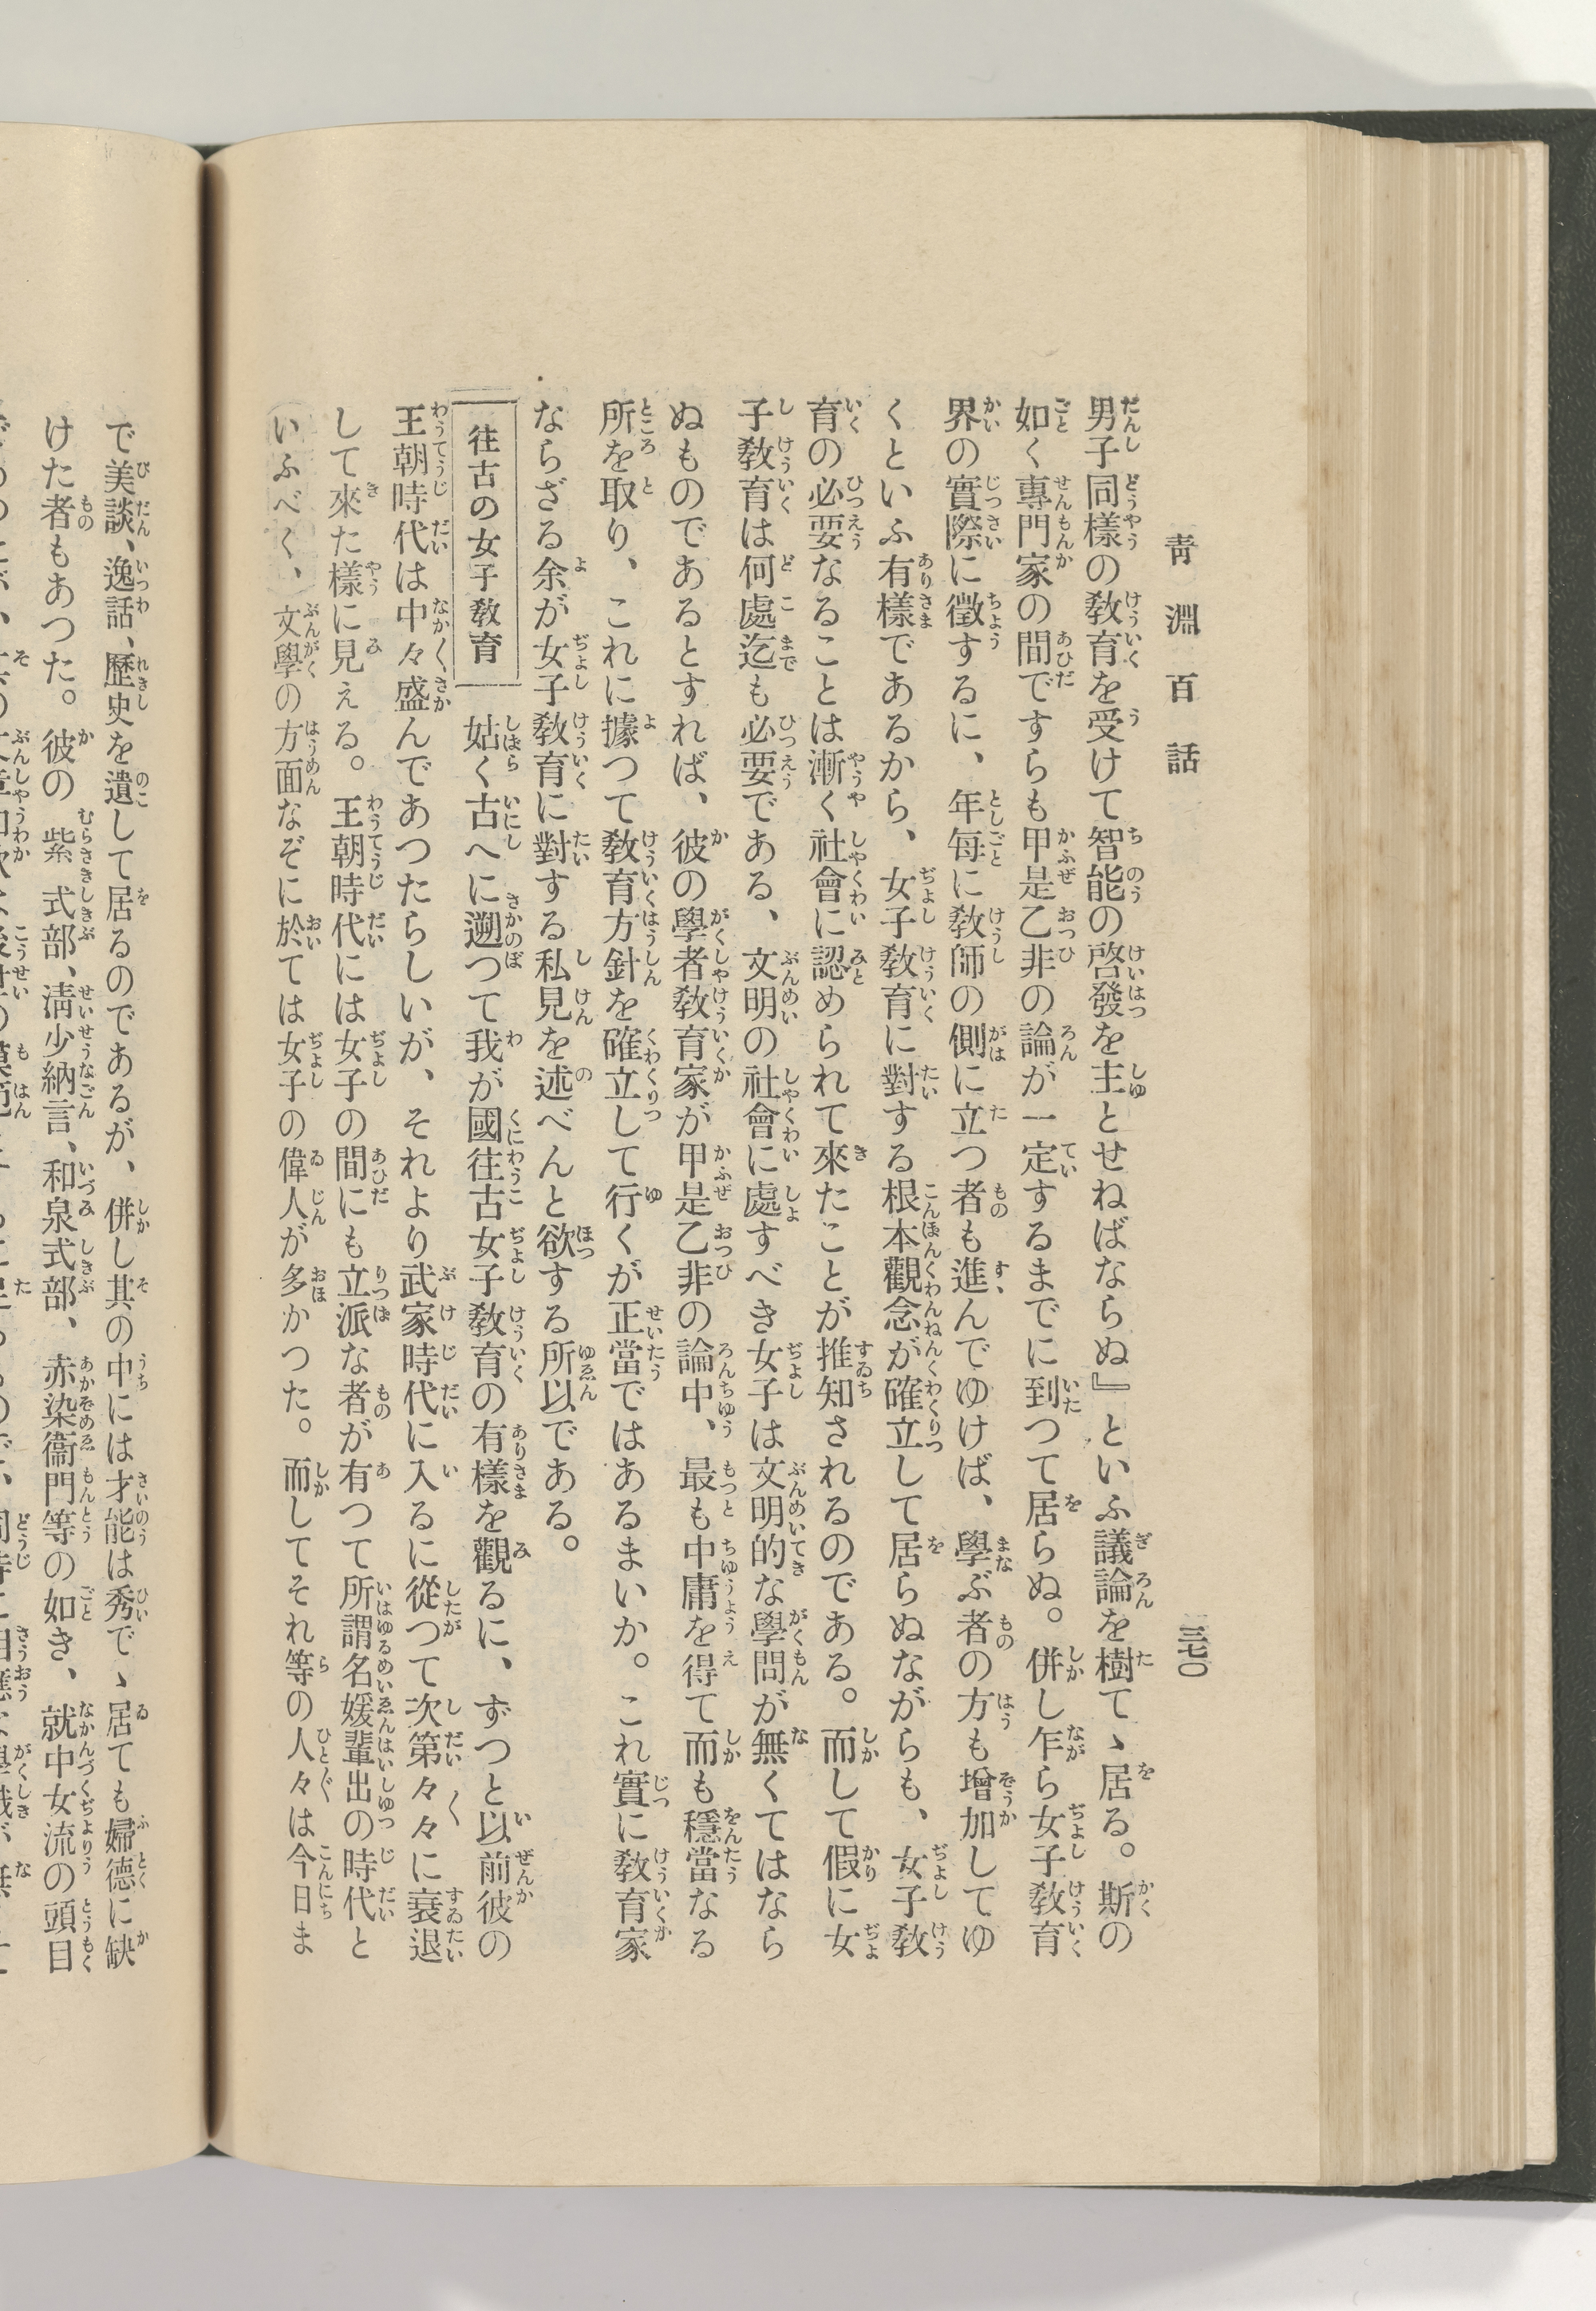 青淵百話
三七〇
男子同樣の敎育を受けて智能の啓發を主とせねばならぬ』といふ議論を樹てゝ居る。斯の
如く專門家の間ですらも甲是乙非の論が一定するまでに到つて居らぬ。併し乍ら女子敎育
界の實際に徵するに、年每に敎師の側に立つ者も進んでゆけば、學ぶ者の方も增加してゆ
くといふ有樣であるから、女子敎育に對する根本觀念が確立して居らぬながらも、女子敎
育の必要なることは漸く社會に認められて來たことが推知されるのである。而して假に女
子敎育は何處迄も必要である、文明の社會に處すべき女子は文明的な學問が無くてはなら
ぬものであるとすれば、彼の學者敎育家が甲是乙非の論中、最も中庸を得て而も穩當なる
所を取り、これに據つて敎育方針を確立して行くが正當ではあるまいか。これ實に敎育家
ならざる余が女子敎育に對する私見を述べんと欲する所以である。
往古の女子敎育
姑く古へに遡つて我が國往古女子敎育の有樣を觀るに、ずつと以前彼の
王朝時代は中々盛んであつたらしいが、それより武家時代に入るに從つて次第々々に衰退
して來た樣に見える。王朝時代には女子の間にも立派な者が有つて所謂名媛輩出の時代と
いふべく、文學の方面なぞに於ては女子の偉人が多かつた。而してそれ等の人々は今日ま
で美談、逸話、歷史を遺して居るのであるが、併し其の中には才能は秀でゝ居ても婦德に缺
けた者もあつた。彼の紫式部、淸少納言、和泉式部、赤染衞門等の如き、就中女流の頭目